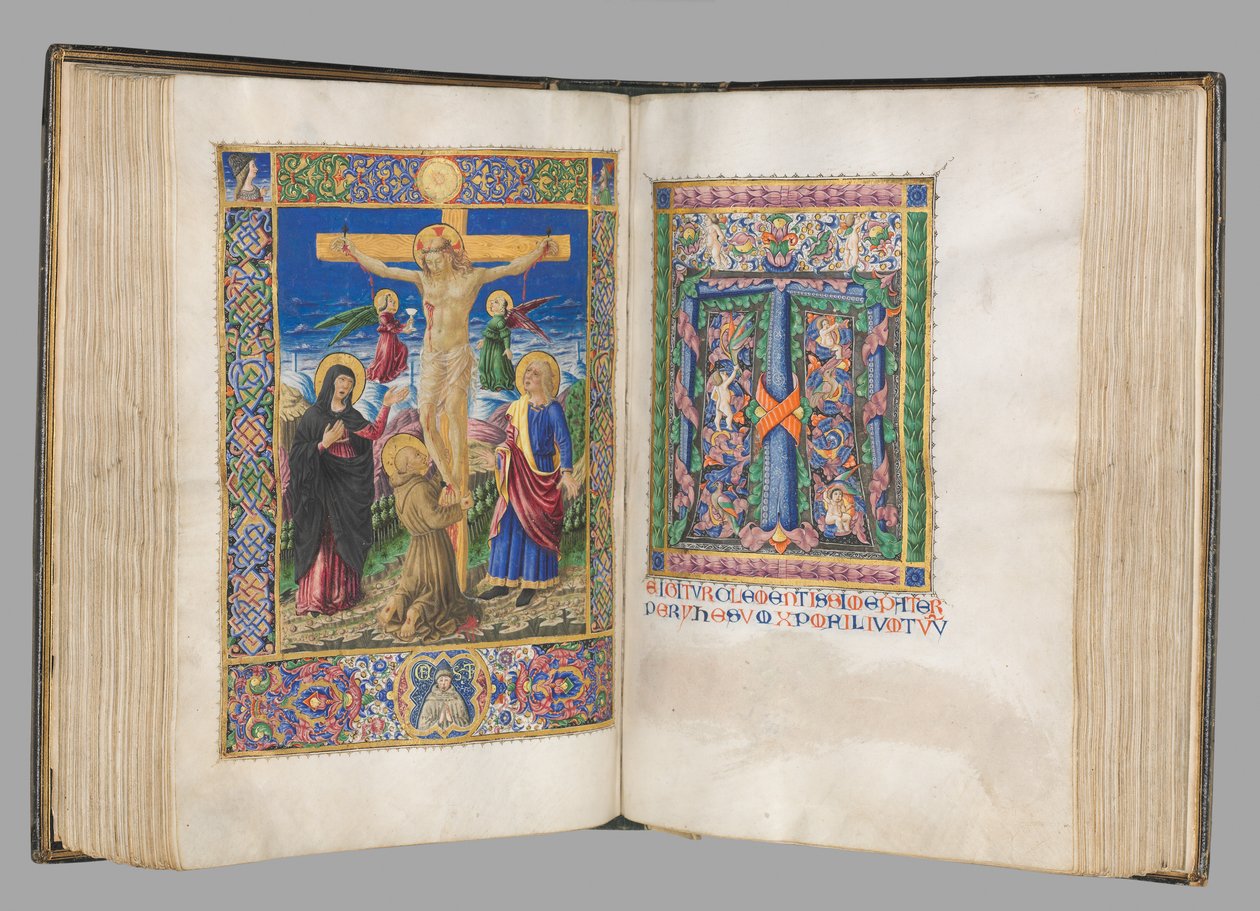 T
E IGITVR CLEMENTISSIME PATER
PER YHESVM XPM FILIVM TVV̄